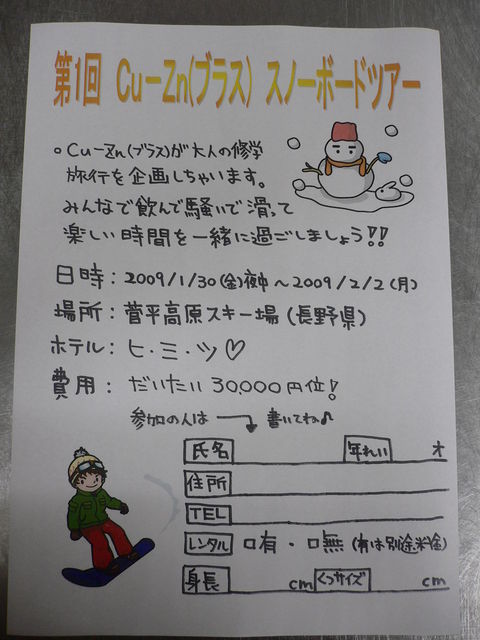 第1回 Cu－Zn(ブラス) スノーボードツアー
。Cu－Zn(ブラス)が大人の修学
旅行を企画しちゃいます。
みんなで飲んで騒いで滑って
楽しい時間を一緒に過ごしましょう!!
日時：2009/1/30(金)夜中～2009/2/2(月)
場所：菅平高原スキー場(長野県)
ホテル：ヒ・ミ・ツ♡
費用：だいたい30,000円位!
参加の人は→書いてね♪
氏名 年れい 才
住所
TEL
レンタル □有・□無(有は別途料金)
身長 cm くつサイズ cm